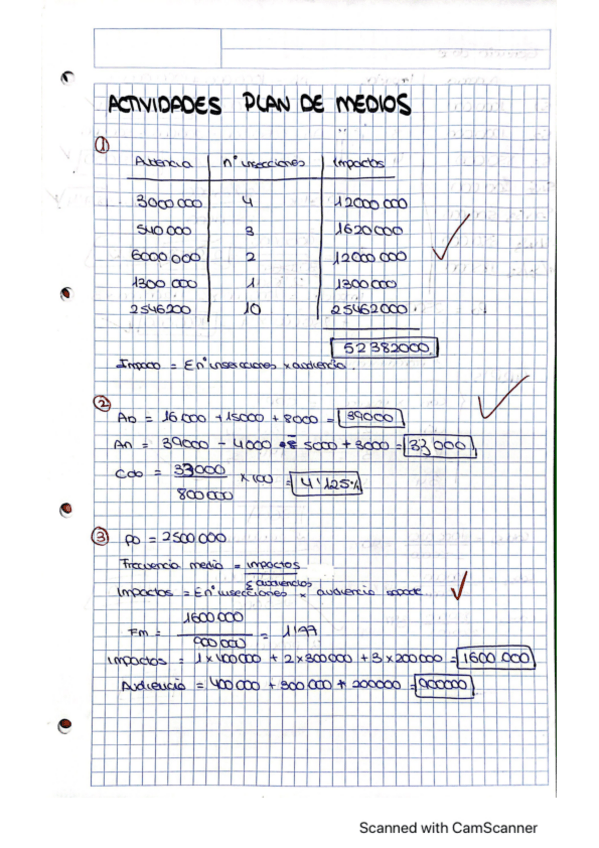 ACTIVIDADES PLAN DE MEDIOS
①
Audiencia nº inserciones Impactos
3000 000 4 12000 000
540 000 3 1620 000
6000 000 2 12000 000
1300 000 1 1300 000
2546200 10 25462000
52 382000
Impacto = Σ nº inserciones x audiencia.
②
AB = 16 000 + 15000 + 8000 = 39000
An = 39000 - 4000 - 5000 + 3000 = 33 000
Cob = 33000 / 800 000 x 100 = 4'125%
③ PO = 2500 000
Frecuencia media = impactos / Σ audiencias
Impactos = Σ nº inserciones x audiencia soporte
Fm = 1600 000 / 900 000 = 1'77
Impactos = 1 x 400 000 + 2 x 300 000 + 3 x 200 000 = 1600 000
Audiencia = 400 000 + 300 000 + 200000 = 900000
Scanned with CamScanner